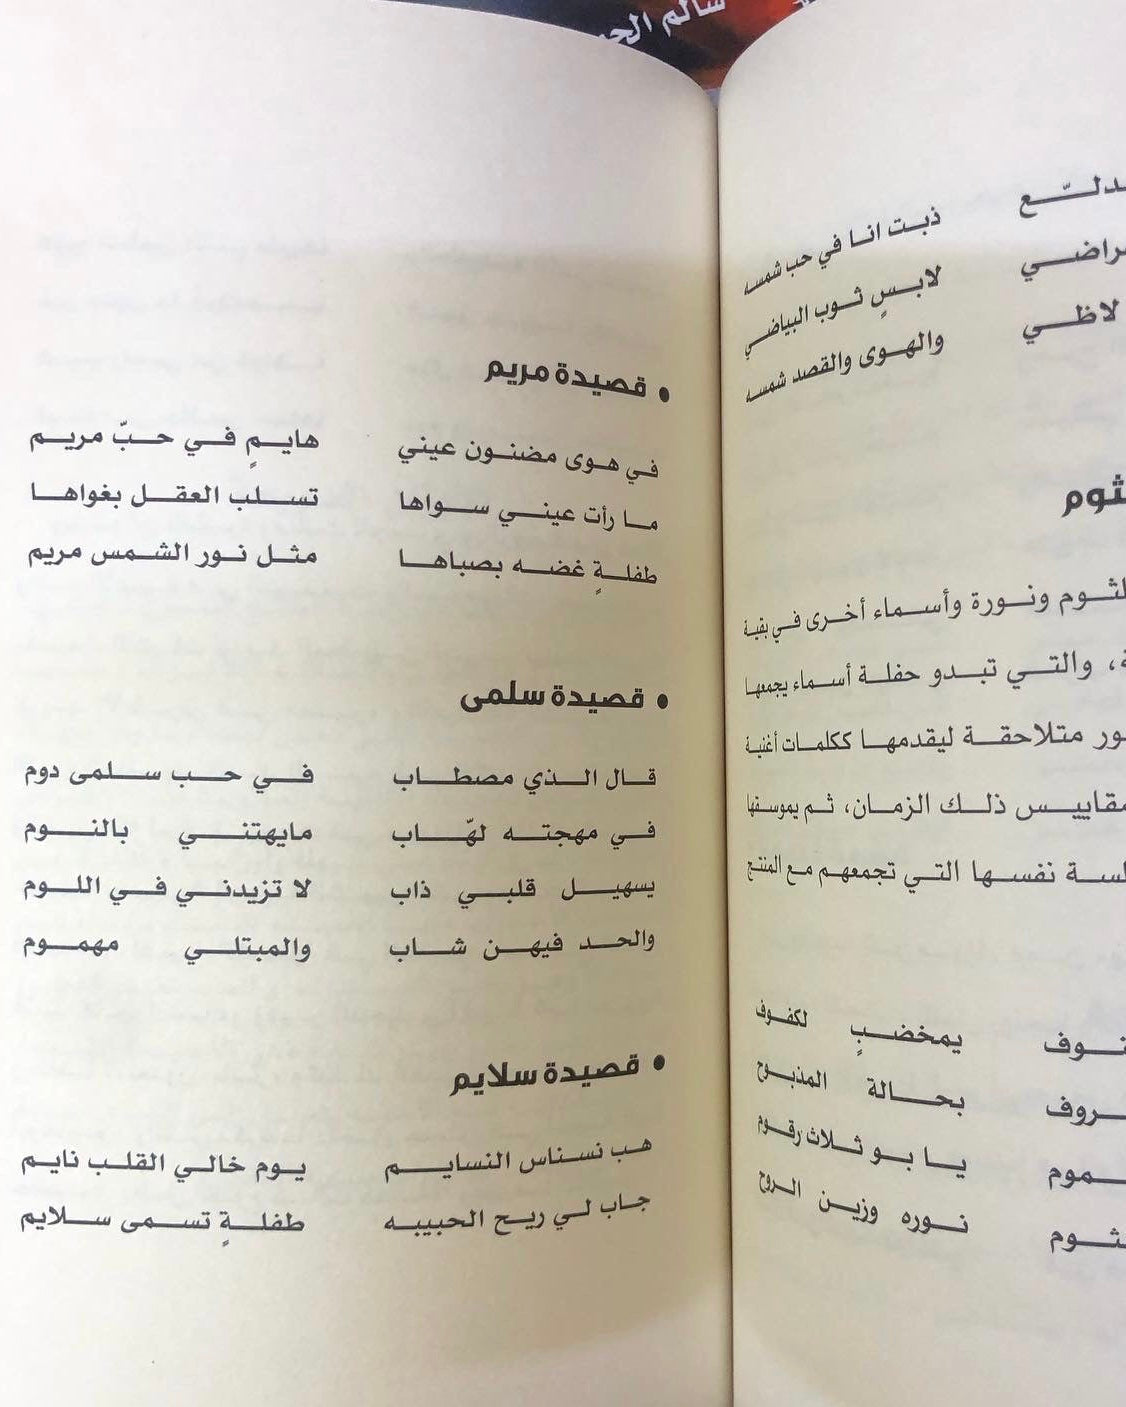 سالم
ذبت انا في حب شمسه
لابسٍ ثوب البياضي
والهوى والقصد شمسه
ونورة وأسماء أخرى في بقية
والتي تبدو حفلة أسماء يجمعها
متلاحقة ليقدمها ككلمات أغنية
ذلك الزمان، ثم يموسقها
نفسها التي تجمعهم مع المنتج
يمخضبٍ لكفوف
بحالة المذبوح
يا بو ثلاث رقوم
نوره وزين الروح
• قصيدة مريم
في هوى مضنون عيني هايمٍ في حبّ مريم
ما رأت عيني سواها تسلب العقل بغواها
طفلةٍ غضه بصباها مثل نور الشمس مريم
• قصيدة سلمى
قال الذي مصطاب في حب سلمى دوم
في مهجته لهّاب مايهتني بالنوم
يسهيل قلبي ذاب لا تزيدني في اللوم
والحد فيهن شاب والمبتلي مهموم
• قصيدة سلايم
هب نسناس النسايم يوم خالي القلب نايم
جاب لي ريح الحبيبه طفلةٍ تسمى سلايم